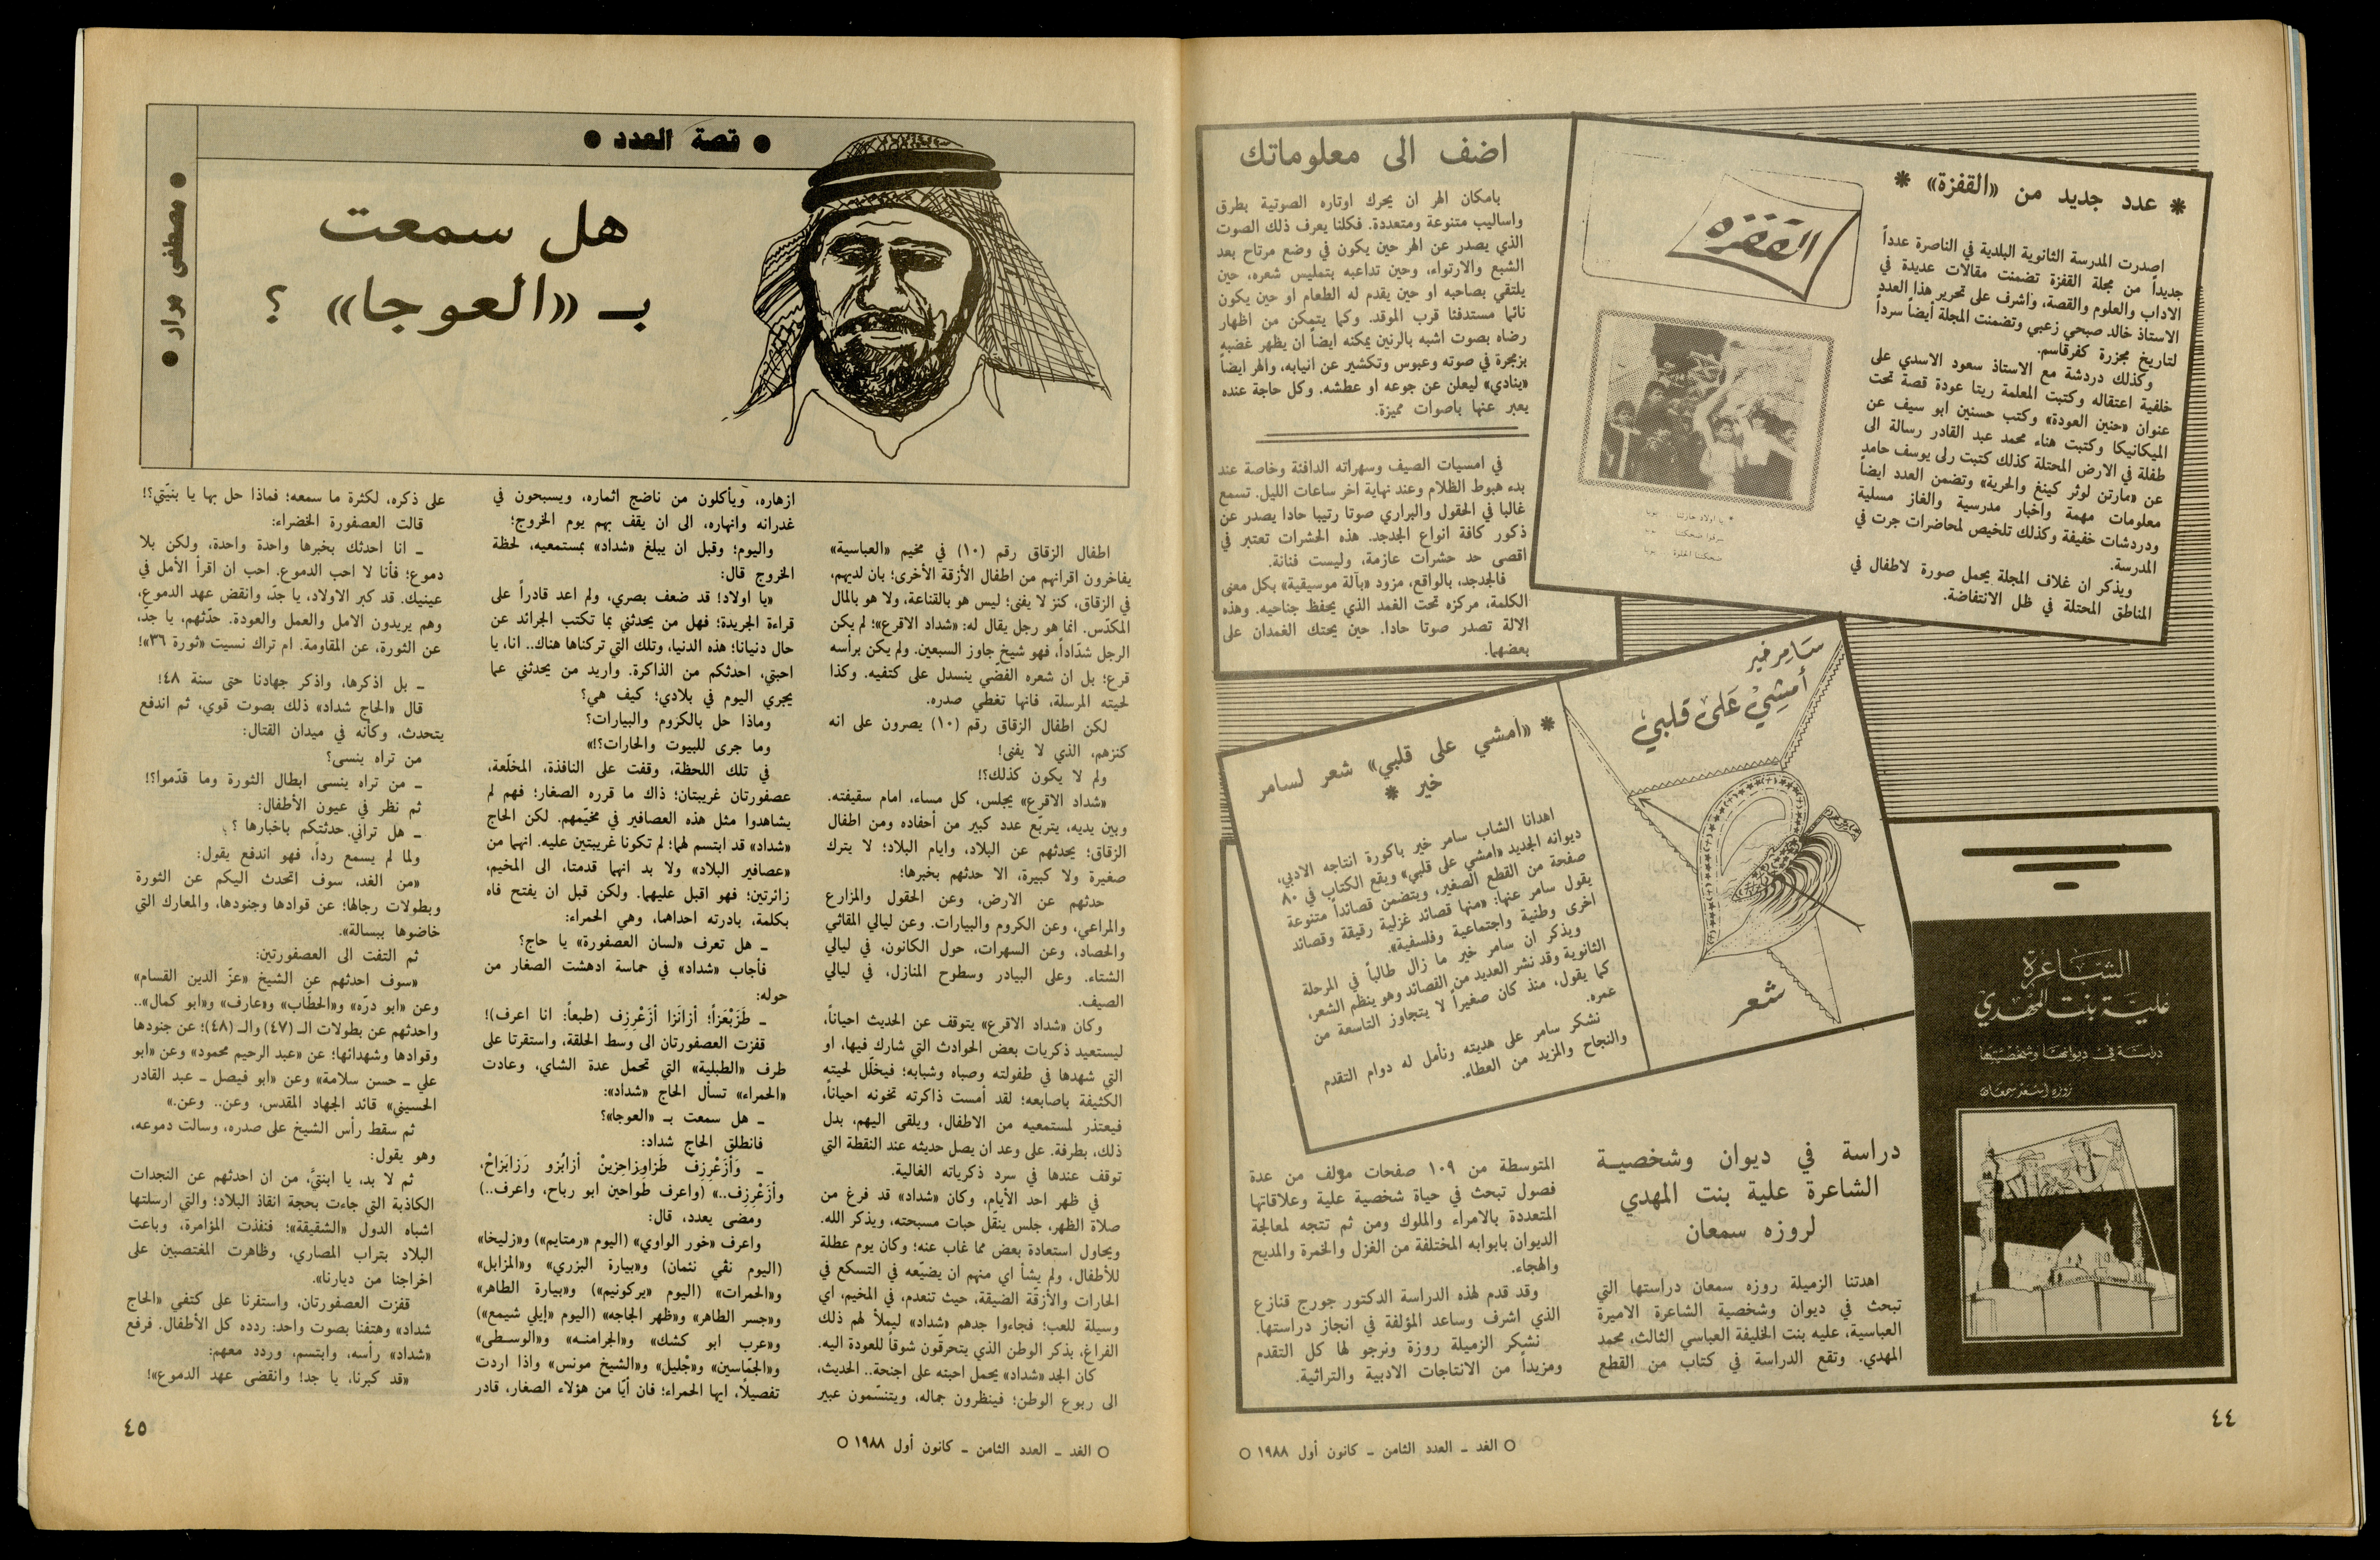 * عدد جديد من «القفزة» *
القفزة
اصدرت المدرسة الثانوية البلدية في الناصرة عدداً
جديداً من مجلة القفزة تضمنت مقالات عديدة في
الاداب والعلوم والقصة، واشرف على تحرير هذا العدد
الاستاذ خالد صبحي زعبي وتضمنت المجلة أيضاً سرداً
لتاريخ مجزرة كفرقاسم.
وكذلك دردشة مع الاستاذ سعود الاسدي على
خلفية اعتقاله وكتبت المعلمة ريتا عودة قصة تحت
عنوان «حنين العودة» وكتب حسنين ابو سيف عن
الميكانيكا وكتبت هناء محمد عبد القادر رسالة الى
طفلة في الارض المحتلة كذلك كتبت رلى يوسف حامد
عن «مارتن لوثر كينغ والحرية» وتضمن العدد ايضاً
معلومات مهمة واخبار مدرسية والغاز مسلية
ودردشات خفيفة وكذلك تلخيص لمحاضرات جرت في
المدرسة.
ويذكر ان غلاف المجلة يحمل صورة لاطفال في
المناطق المحتلة في ظل الانتفاضة.
اضف الى معلوماتك
بامكان الهر ان يحرك اوتاره الصوتية بطرق
واساليب متنوعة ومتعددة. فكلنا يعرف ذلك الصوت
الذي يصدر عن الهر حين يكون في وضع مرتاح بعد
الشبع والارتواء، وحين تداعبه بتمليس شعره، حين
يلتقي بصاحبه او حين يقدم له الطعام او حين يكون
نائما مستدفئا قرب الموقد. وكما يتمكن من اظهار
رضاه بصوت اشبه بالرنين يمكنه ايضاً ان يظهر غضبه
بزمجرة في صوته وعبوس وتكشير عن انيابه، والهر ايضاً
«ينادي» ليعلن عن جوعه او عطشه. وكل حاجة عنده
يعبر عنها باصوات مميزة.
في امسيات الصيف وسهراته الدافئة وخاصة عند
بدء هبوط الظلام وعند نهاية اخر ساعات الليل. تسمع
غالبا في الحقول والبراري صوتا رتيبا حادا يصدر عن
ذكور كافة انواع الجدجد. هذه الحشرات تعتبر في
اقصى حد حشرات عازمة، وليست فنانة.
فالجدجد، بالواقع، مزود «بآلة موسيقية» بكل معنى
الكلمة، مركزه تحت الغمد الذي يحفظ جناحيه. وهذه
الالة تصدر صوتا حادا. حين يحتك الغمدان على
بعضهما.
سَامر خير
أمشِي عَلى قلبي
شعر
* «أمشي على قلبي» شعر لسامر
خير *
اهدانا الشاب سامر خير باكورة انتاجه الادبي،
ديوانه الجديد «امشي على قلبي» ويقع الكتاب في ٨٠
صفحة من القطع الصغير، ويتضمن قصائداً متنوعة
يقول سامر عنها: «منها قصائد غزلية رقيقة وقصائد
اخرى وطنية واجتماعية وفلسفية».
ويذكر ان سامر خير ما زال طالباً في المرحلة
الثانوية وقد نشر العديد من القصائد وهو ينظم الشعر،
كما يقول، منذ كان صغيراً لا يتجاوز التاسعة من
عمره.
نشكر سامر على هديته ونأمل له دوام التقدم
والنجاح والمزيد من العطاء.
الشاعرة
عليّة بنت المهدي
دراسة في ديوانها وشخصيتها
روزه اسعد سمعان
دراسة في ديوان وشخصية
الشاعرة علية بنت المهدي
لروزه سمعان
اهدتنا الزميلة روزه سمعان دراستها التي
تبحث في ديوان وشخصية الشاعرة الاميرة
العباسية، عليه بنت الخليفة العباسي الثالث، محمد
المهدي. وتقع الدراسة في كتاب من القطع
المتوسطة من ١٠٩ صفحات مؤلف من عدة
فصول تبحث في حياة شخصية علية وعلاقاتها
المتعددة بالامراء والملوك ومن ثم تتجه لمعالجة
الديوان بابوابه المختلفة من الغزل والخمرة والمديح
والهجاء.
وقد قدم لهذه الدراسة الدكتور جورج قنازع
الذي اشرف وساعد المؤلفة في انجاز دراستها.
نشكر الزميلة روزة ونرجو لها كل التقدم
ومزيداً من الانتاجات الادبية والتراثية.
٤٤
○ الغد ـ العدد الثامن ـ كانون أول ١٩٨٨ ○
● قصة العدد ●
● مصطفى مرار ●
هل سمعت
بـ «العوجا» ؟
اطفال الزقاق رقم (١٠) في مخيم «العباسية»
يفاخرون اقرانهم من اطفال الأزقة الأخرى؛ بان لديهم،
في الزقاق، كنز لا يفنى؛ ليس هو بالقناعة، ولا هو بالمال
المكدّس. انما هو رجل يقال له: «شداد الاقرع»؛ لم يكن
الرجل شدّاداً، فهو شيخ جاوز السبعين. ولم يكن برأسه
قرع؛ بل ان شعره الفضّي ينسدل على كتفيه. وكذا
لحيته المرسلة، فانها تغطي صدره.
لكن اطفال الزقاق رقم (١٠) يصرون على انه
كنزهم، الذي لا يفنى!
ولم لا يكون كذلك؟!
«شداد الاقرع» يجلس، كل مساء، امام سقيفته.
وبين يديه، يتربّع عدد كبير من أحفاده ومن اطفال
الزقاق؛ يحدثهم عن البلاد، وايام البلاد؛ لا يترك
صغيرة ولا كبيرة، الا حدثهم بخبرها؛
حدثهم عن الارض، وعن الحقول والمزارع
والمراعي، وعن الكروم والبيارات. وعن ليالي المقاثي
والحصاد، وعن السهرات، حول الكانون، في ليالي
الشتاء. وعلى البيادر وسطوح المنازل، في ليالي
الصيف.
وكان «شداد الاقرع» يتوقف عن الحديث احياناً،
ليستعيد ذكريات بعض الحوادث التي شارك فيها، او
التي شهدها في طفولته وصباه وشبابه؛ فيخلّل لحيته
الكثيفة باصابعه؛ لقد أمست ذاكرته تخونه احياناً،
فيعتذر لمستمعيه من الاطفال، ويلقى اليهم، بدل
ذلك، بطرفة. على وعد ان يصل حديثه عند النقطة التي
توقف عندها في سرد ذكرياته الغالية.
في ظهر احد الأيام، وكان «شداد» قد فرغ من
صلاة الظهر، جلس ينقّل حبات مسبحته، ويذكر الله.
ويحاول استعادة بعض مما غاب عنه؛ وكان يوم عطلة
للأطفال، ولم يشأ اي منهم ان يضيّعه في التسكع في
الحارات والأزقة الضيقة، حيث تنعدم، في المخيم، اي
وسيلة للعب؛ فجاءوا جدهم «شداد» ليملأ لهم ذلك
الفراغ، بذكر الوطن الذي يتحرقّون شوقاً للعودة اليه.
كان الجد «شداد» يحمل احبته على اجنحة.. الحديث،
الى ربوع الوطن؛ فينظرون جماله، ويتنسّمون عبير
ازهاره، ويأكلون من ناضج اثماره، ويسبحون في
غدرانه وانهاره، الى ان يقف بهم يوم الخروج؛
واليوم؛ وقبل ان يبلغ «شداد» بمستمعيه، لحظة
الخروج قال:
«يا اولاد! قد ضعف بصري، ولم اعد قادراً على
قراءة الجريدة؛ فهل من يحدثني بما تكتب الجرائد عن
حال دنيانا؛ هذه الدنيا، وتلك التي تركناها هناك.. انا، يا
احبتي، احدثكم من الذاكرة. واريد من يحدثني عما
يجري اليوم في بلادي؛ كيف هي؟
وماذا حل بالكروم والبيارات؟
وما جرى للبيوت والحارات؟!»
في تلك اللحظة، وقفت على النافذة، المخلّعة،
عصفورتان غريبتان؛ ذاك ما قرره الصغار؛ فهم لم
يشاهدوا مثل هذه العصافير في مخيّمهم. لكن الحاج
«شداد» قد ابتسم لهما؛ لم تكونا غريبتين عليه. انهما من
«عصافير البلاد» ولا بد انهما قدمتا، الى المخيم،
زائرتين؛ فهو اقبل عليهما. ولكن قبل ان يفتح فاه
بكلمة، بادرته احداهما، وهي الحمراء:
ـ هل تعرف «لسان العصفورة» يا حاج؟
فأجاب «شداد» في حماسة ادهشت الصغار من
حوله:
ـ طَزَبْعَزاً؛ أزانَزا أزَعْرِزِف (طبعاً: انا اعرف)!
قفزت العصفورتان الى وسط الحلقة، واستقرتا على
طرف «الطبلية» التي تحمل عدة الشاي، وعادت
«الحمراء» تسأل الحاج «شداد»:
ـ هل سمعت بـ «العوجا»؟
فانطلق الحاج شداد:
ـ وَأزَعْرِزِف طَزاوِزاحِزينْ أزابُزو رَزابَزاحْ،
وأزَعْرِزِف..» (واعرف طواحين ابو رباح، واعرف..)
ومضى يعدد، قال:
واعرف «خور الواوي» (اليوم «رمتايم») و«زليخا»
(اليوم نفي نئمان) و«بيارة البزري» و«المزابل»
و«الحمرات» (اليوم «يركونيم») و«بيارة الطاهر»
و«جسر الطاهر» و«ظهر الجاجه» (اليوم «إيلي شيمع»)
و«عرب ابو كشك» و«الجرامنه» و«الوسطى»
و«الجمّاسين» و«جْليل» و«الشيخ مونس» واذا اردت
تفصيلًا، ايها الحمراء؛ فان أيّا من هؤلاء الصغار، قادر
على ذكره، لكثرة ما سمعه؛ فماذا حل بها يا بنيّتي؟!
قالت العصفورة الخضراء:
ـ انا احدثك بخبرها واحدة واحدة، ولكن بلا
دموع؛ فأنا لا احب الدموع. احب ان اقرأ الأمل في
عينيك. قد كبر الاولاد، يا جدّ، وانقض عهد الدموع،
وهم يريدون الامل والعمل والعودة. حدّثهم، يا جدّ،
عن الثورة، عن المقاومة. ام تراك نسيت «ثورة ٣٦»!
ـ بل اذكرها، واذكر جهادنا حتى سنة ٤٨!
قال «الحاج شداد» ذلك بصوت قوي، ثم اندفع
يتحدث، وكأنه في ميدان القتال:
من تراه ينسى؟
ـ من تراه ينسى ابطال الثورة وما قدّموا؟!
ثم نظر في عيون الأطفال:
ـ هل تراني حدثتكم باخبارها ؟
ولما لم يسمع رداً، فهو اندفع يقول:
«من الغد، سوف اتحدث اليكم عن الثورة
وبطولات رجالها؛ عن قوادها وجنودها، والمعارك التي
خاضوها ببسالة».
ثم التفت الى العصفورتين:
«سوف احدثهم عن الشيخ «عزّ الدين القسام»
وعن «ابو درّه» و«الحطّاب» و«عارف» و«ابو كمال»..
واحدثهم عن بطولات الـ (٤٧) والـ (٤٨)؛ عن جنودها
وقوادها وشهدائها؛ عن «عبد الرحيم محمود» وعن «ابو
علي ـ حسن سلامة» وعن «ابو فيصل ـ عبد القادر
الحسيني» قائد الجهاد المقدس، وعن.. وعن.»
ثم سقط رأس الشيخ على صدره، وسالت دموعه،
وهو يقول:
ثم لا بد، يا ابنتيَّ، من ان احدثهم عن النجدات
الكاذبة التي جاءت بحجة انقاذ البلاد؛ والتي ارسلتها
اشباه الدول «الشقيقة»؛ فنفذت المؤامرة، وباعت
البلاد بتراب المصاري، وظاهرت المغتصبين على
اخراجنا من ديارنا».
قفزت العصفورتان، واستقرنا على كتفي «الحاج
شداد» وهتفنا بصوت واحد: ردده كل الأطفال. فرفع
«شداد» رأسه، وابتسم، وردد معهم:
«قد كبرنا، يا جد! وانقضى عهد الدموع»!
○ الغد ـ العدد الثامن ـ كانون أول ١٩٨٨ ○
٤٥